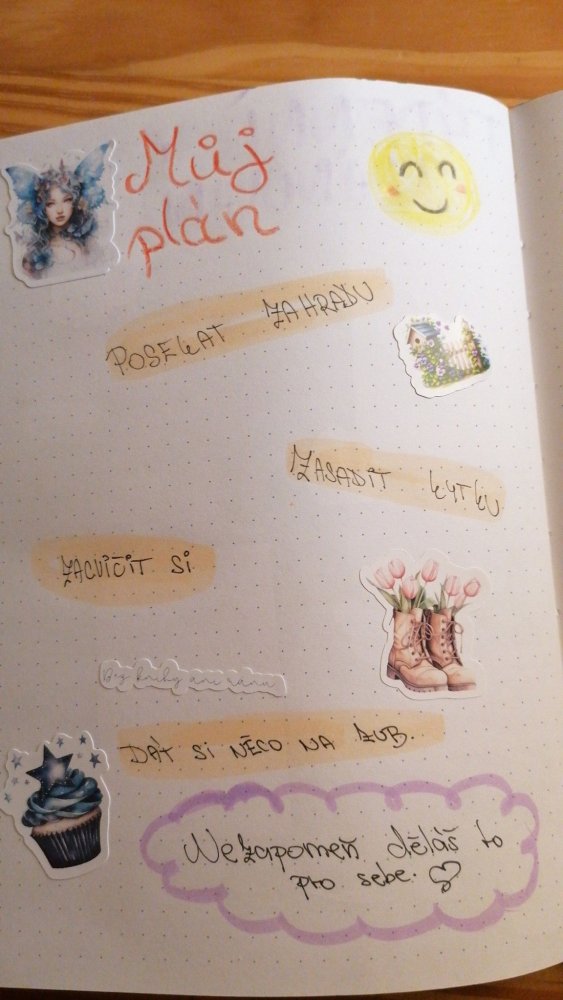 Můj
plán
POSEKAT ZAHRADU
ZASADIT KYTKU
ZACVIČIT SI
Bez knihy ani ránu
DÁT SI NĚCO NA ZUB.
Nezapomeň děláš to
pro sebe.